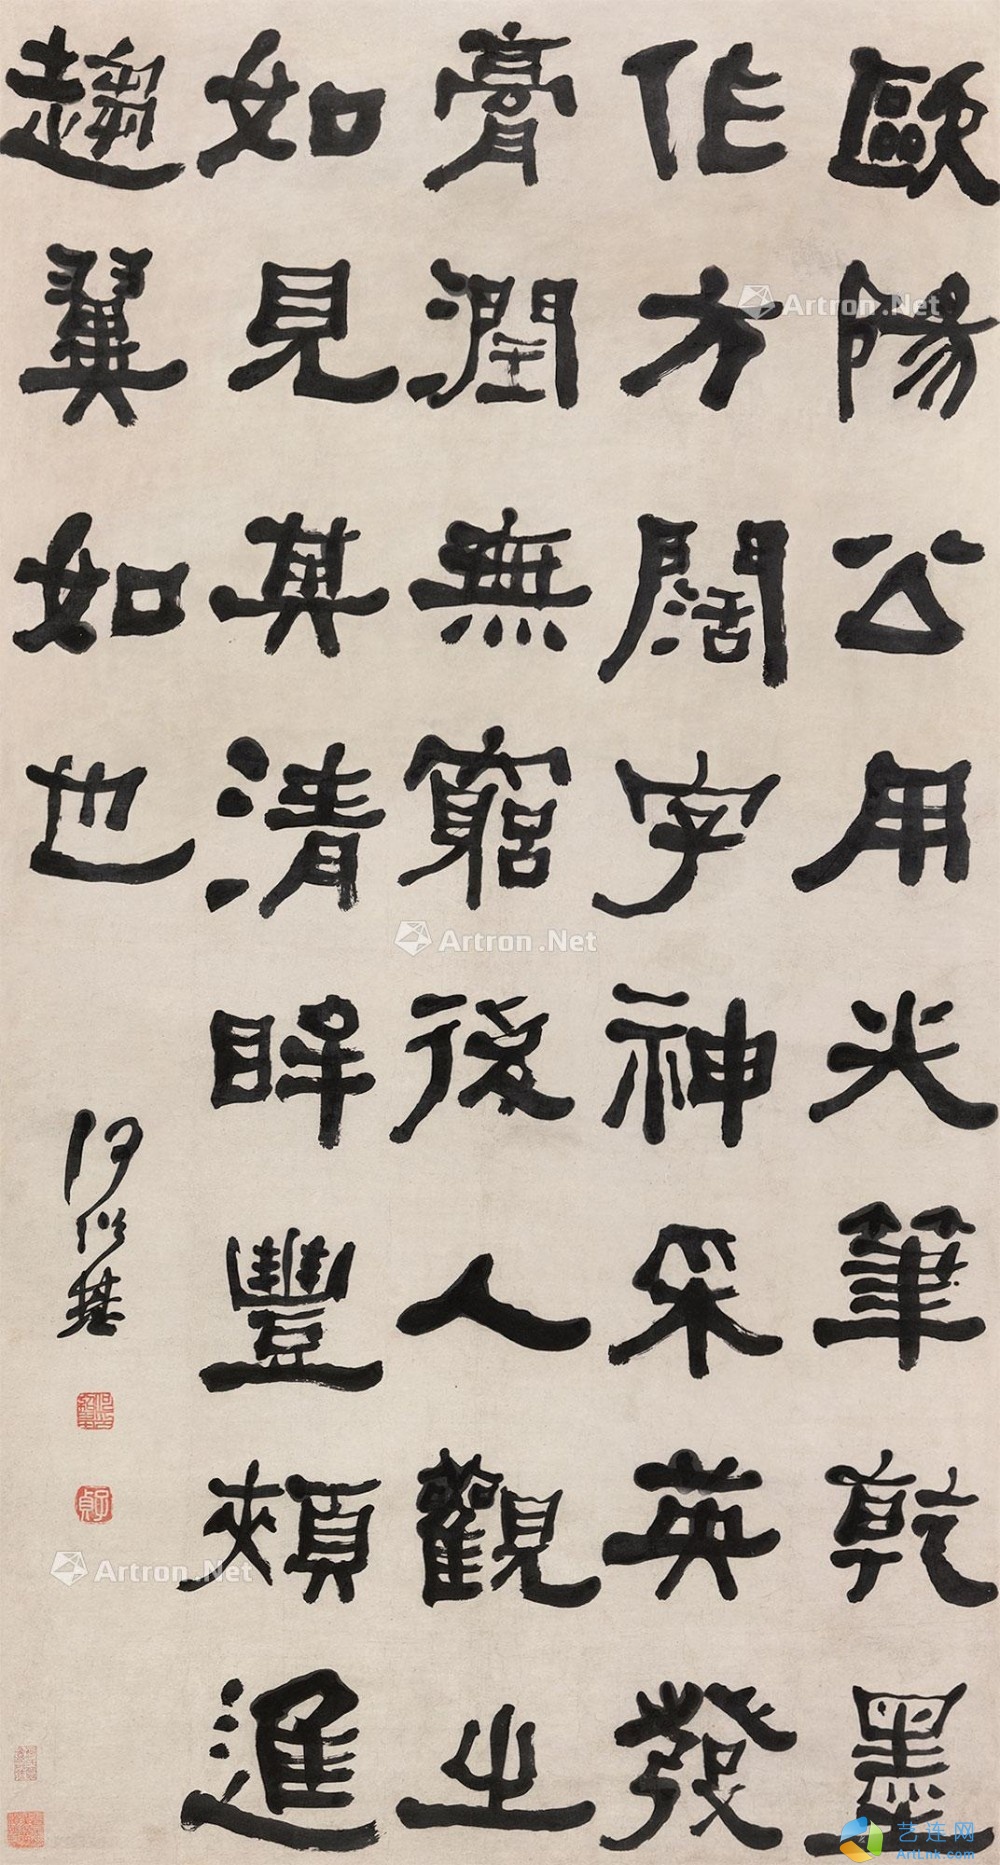 歐陽公用尖筆乾墨
作方闊字神采英發
膏潤無窮後人觀之
如見其清眸豐頰進
趨翼如也
何紹基
Artron.Net
Artron.Net
Artron.Net
艺连网
ArtLnk.com